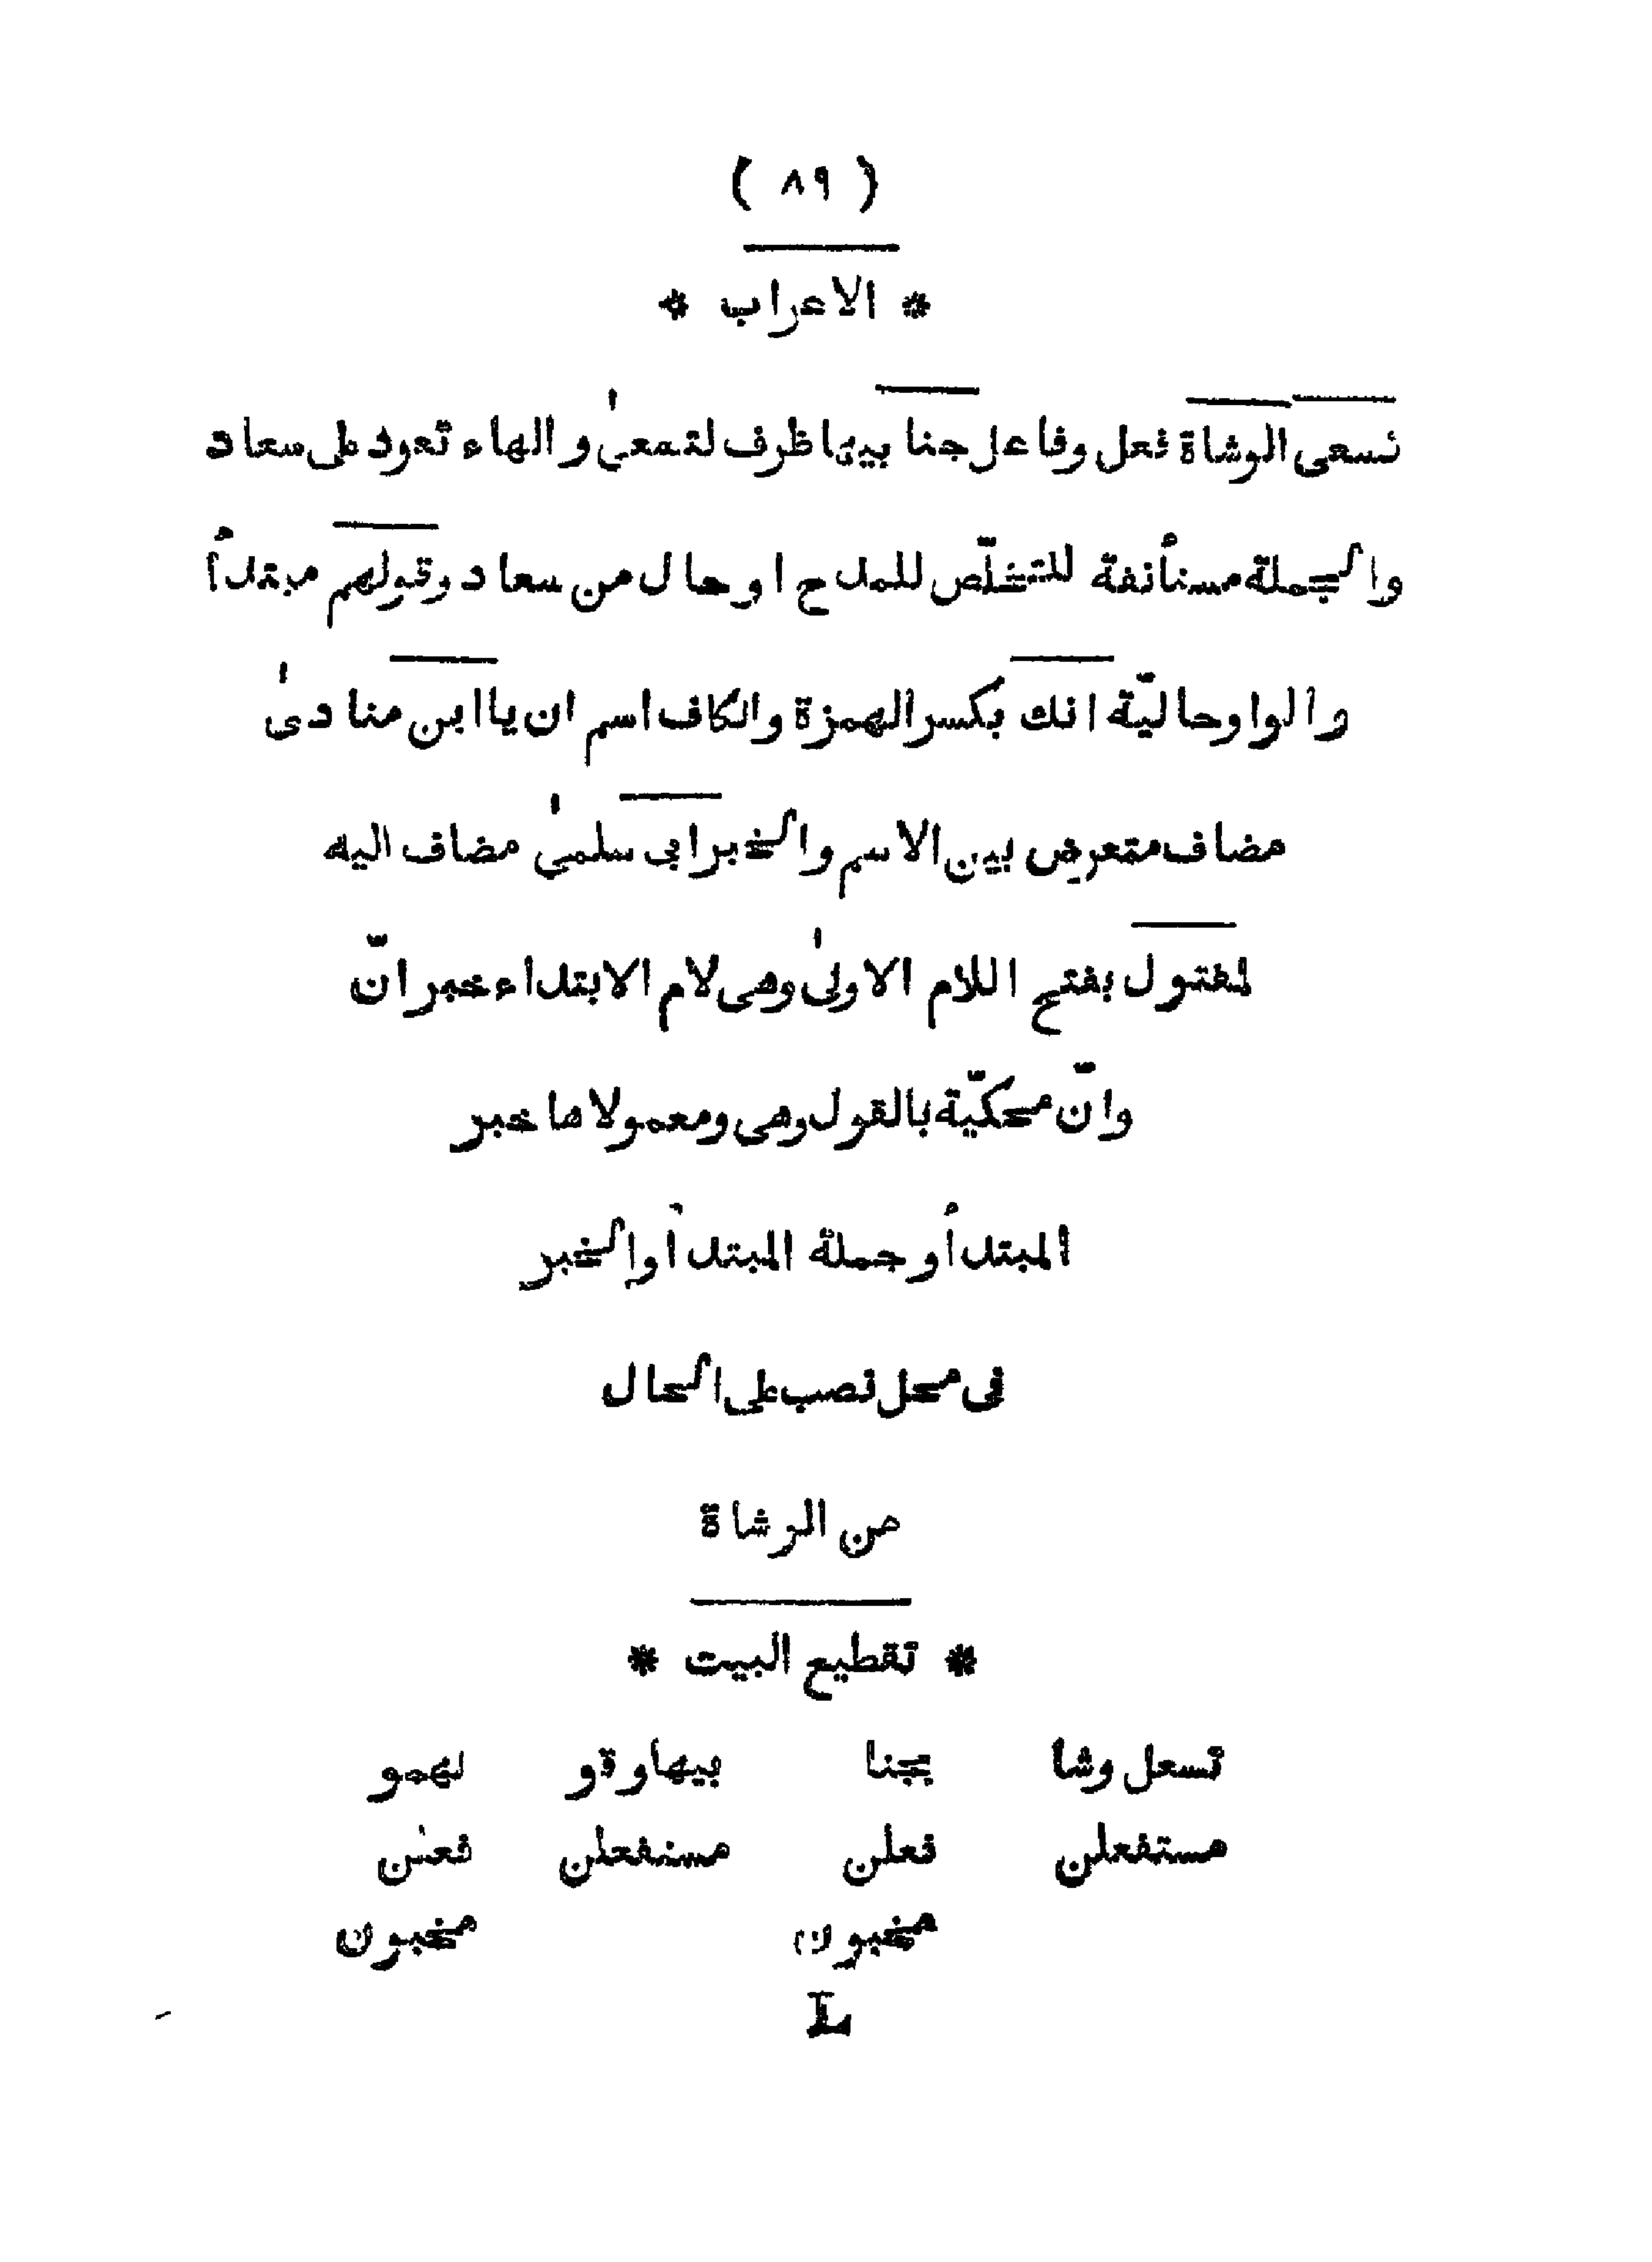 ( ٨٩ )
* الاعراب *
تسعى الوشاة فعل وفاعل جنابيها ظرف لتسعىٰ والهاء تعود على سعاد
والجملة مستأنفة للتخلّص للمدح اوحال من سعاد وقولهم مبتدأ
والواوحاليّة انك بكسر الهمزة والكاف اسم ان يا ابن منادىٰ
مضاف متعرض بين الاسم والخبر ابى سلمىٰ مضاف اليه
لمقتول بفتح اللام الاولىٰ وهى لام الابتداء خبر انّ
وانّ محكيّة بالقول وهى ومعمولاها خبر
المبتدأ وجملة المبتدأ والخبر
فى محل نصب على الحال
من الوشاة
* تقطيع البيت *
تسعل وشا يجنا بيهاوقو لهمو
مستفعلن فعلن مستفعلن فعلن
مخبون مخبون